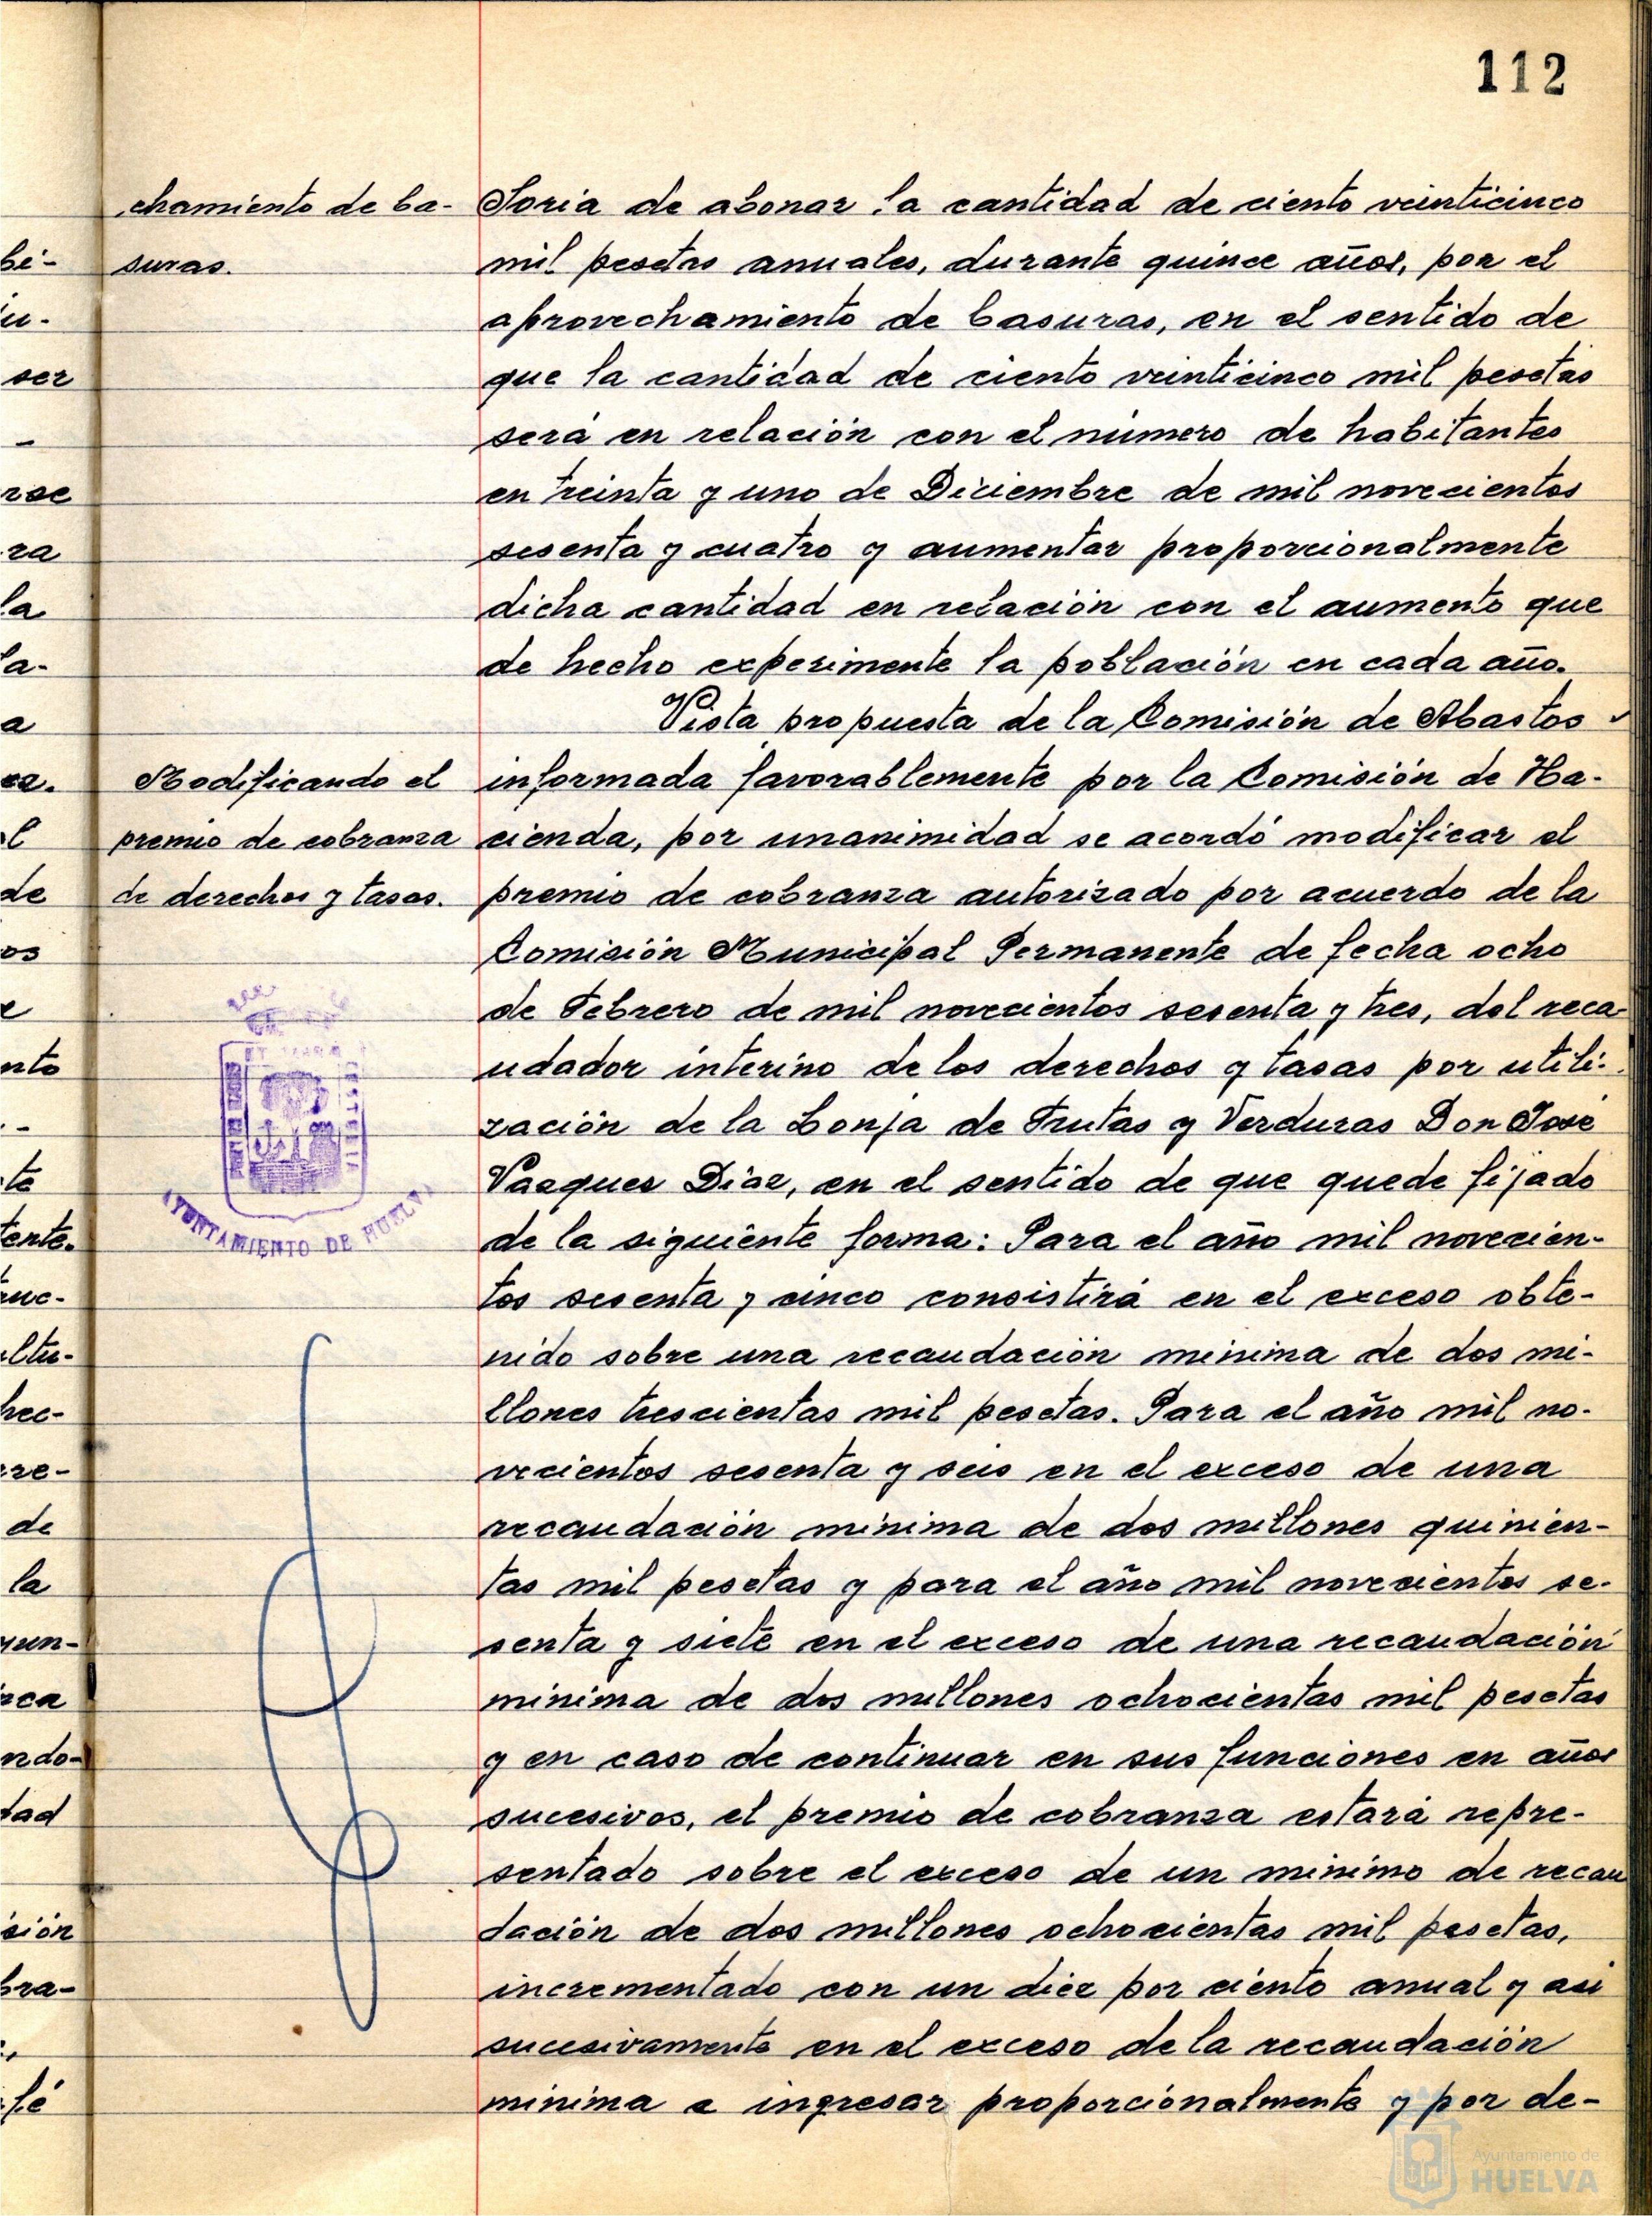 112
chamiento de ba-
suras.
Soria de abonar la cantidad de ciento veinticinco
mil pesetas anuales, durante quince años, por el
aprovechamiento de basuras, en el sentido de
que la cantidad de ciento veinticinco mil pesetas
será en relación con el número de habitantes
en treinta y uno de Diciembre de mil novecientos
sesenta y cuatro y aumentar proporcionalmente
dicha cantidad en relación con el aumento que
de hecho experimente la población en cada año.
Vista propuesta de la Comisión de Abastos
Modificando el
premio de cobranza
de derechos y tasas.
informada favorablemente por la Comisión de Ha-
cienda, por unanimidad se acordó modificar el
premio de cobranza autorizado por acuerdo de la
Comisión Municipal Permanente de fecha ocho
de Febrero de mil novecientos sesenta y tres, del reca-
udador interino de los derechos y tasas por utili-
zación de la Lonja de Frutas y Verduras Don José
Vazquez Diaz, en el sentido de que quede fijado
de la siguiente forma: Para el año mil novecien-
tos sesenta y cinco consistirá en el exceso obte-
nido sobre una recaudación minima de dos mi-
llones trescientas mil pesetas. Para el año mil no-
vecientos sesenta y seis en el exceso de una
recaudación minima de dos millones quinien-
tas mil pesetas y para el año mil novecientos se-
senta y siete en el exceso de una recaudación
minima de dos millones ochocientas mil pesetas
y en caso de continuar en sus funciones en años
sucesivos, el premio de cobranza estará repre-
sentado sobre el exceso de un minimo de recau
dación de dos millones ochocientas mil pesetas,
incrementado con un diez por ciento anual y asi
sucesivamente en el exceso de la recaudación
minima a ingresar proporcionalmente y por de-
AYUNTAMIENTO DE HUELVA
bi-
ser
rse
ra
la
la-
a
de
os
nto
te
tente.
hec-
re-
de
la
yun-
ndo-
dad
sión
bra-
Ayuntamiento de
HUELVA